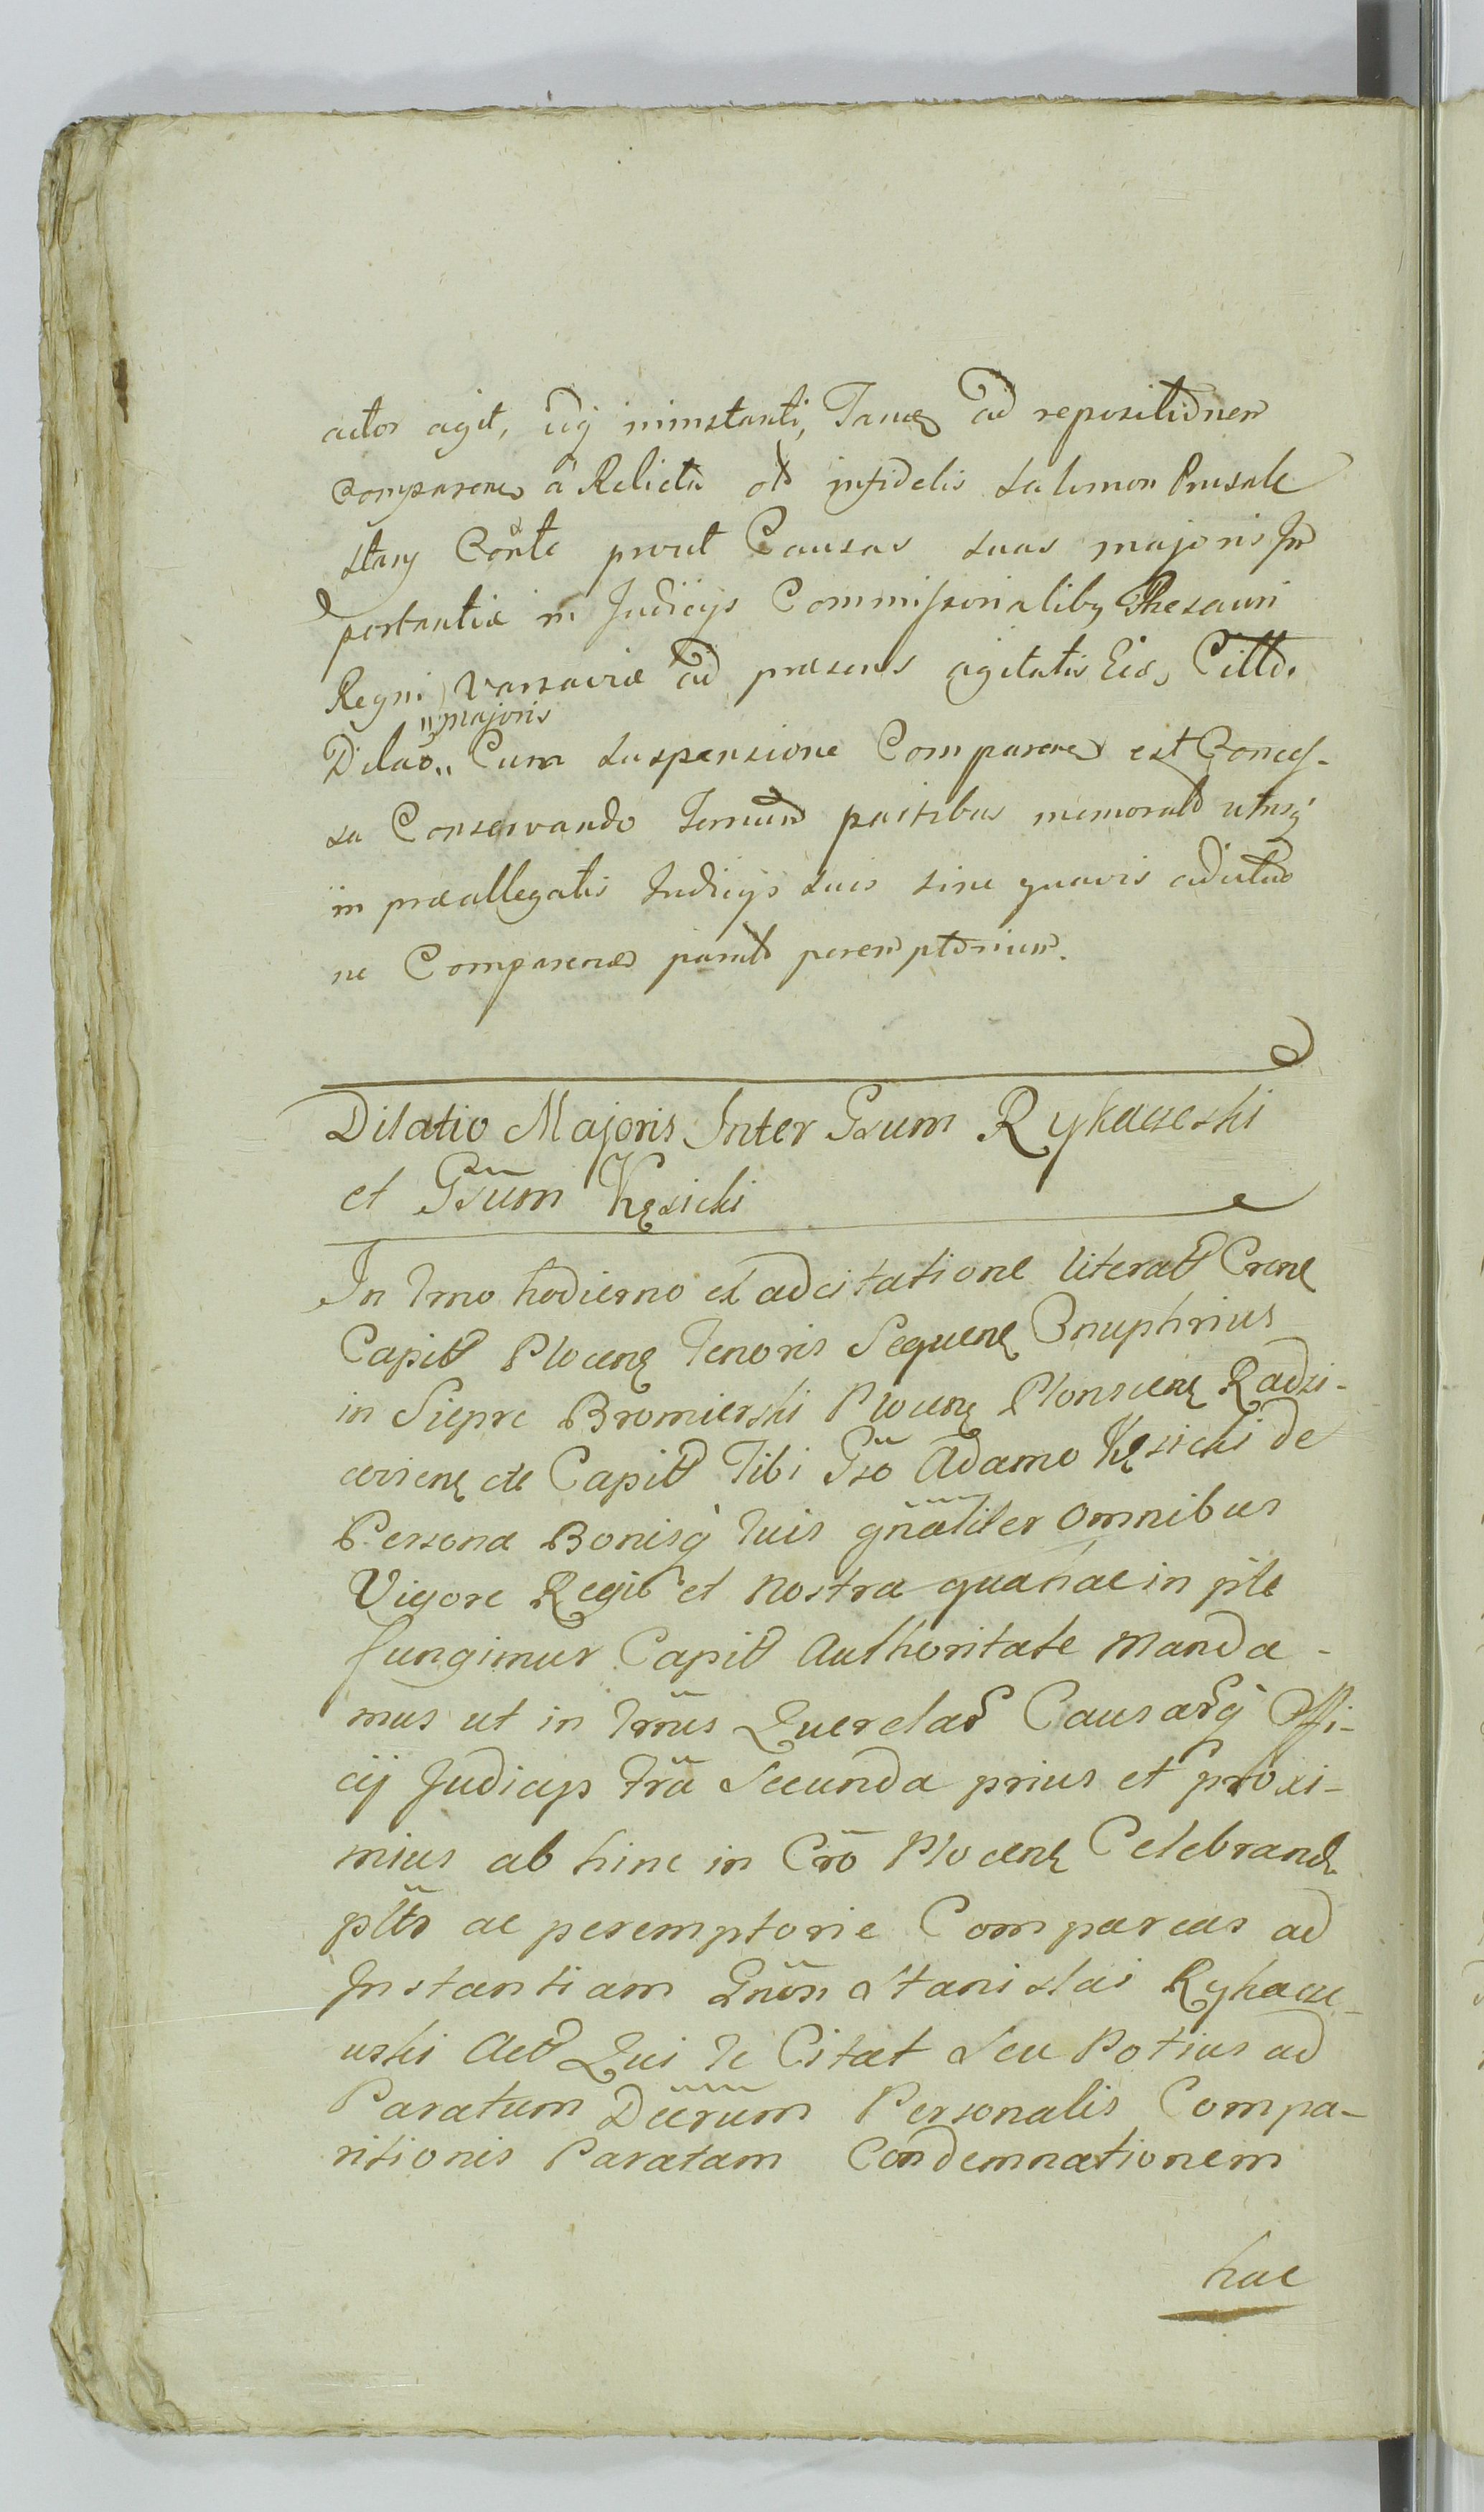 actor agit, uq inimstanti, Tamen ad repositionem
Comparen a Relicta olt infidelis Salomon
stary prout Causas suas majoris Im
portantiæ in Judicijs Commissorialibq Thesauri
Regni Varsaviæ ad præsens agitatis Citt.
"majoris
Dilaõ" Cum suspensione Comparen est Conces-
sa Conservando Termin partibus memorat utrisq
in præallegatis Judicijs suis sine quavis
ne Comparen parat peremptorium.
Dilatio Majoris Inter Gsum Rykaczeski
et Gsũm Kęsicki
In Trno hodierno ex adcitatione literat Crens
Capit Plocens Tenoris Sequens Onuphrius
in Siepre Bromierski Plocens Plonscens Radzi-
cerins etc Capit Tibi Gsõ Adamo Kęsicki de
Persona Bonisq tuis gñaliter omnibus
Vigore Regiõ et nostra qua hac in pte
fungimur Capit Authoritate manda-
mus ut in Trnis Querelar Causarq Offi-
cij Judicijs fra Secunda prius et proxi-
mius ab hinc in Crõ Plocens Celebrand
plts ac peremptorie Compareas ad
Instantiam Gnon Stanislai Rykacze-
uski Act Qui Te Citat Seu Potius ad
Paratum Decrum Personalis Compa-
ritionis Paratam Condemnationem
hac